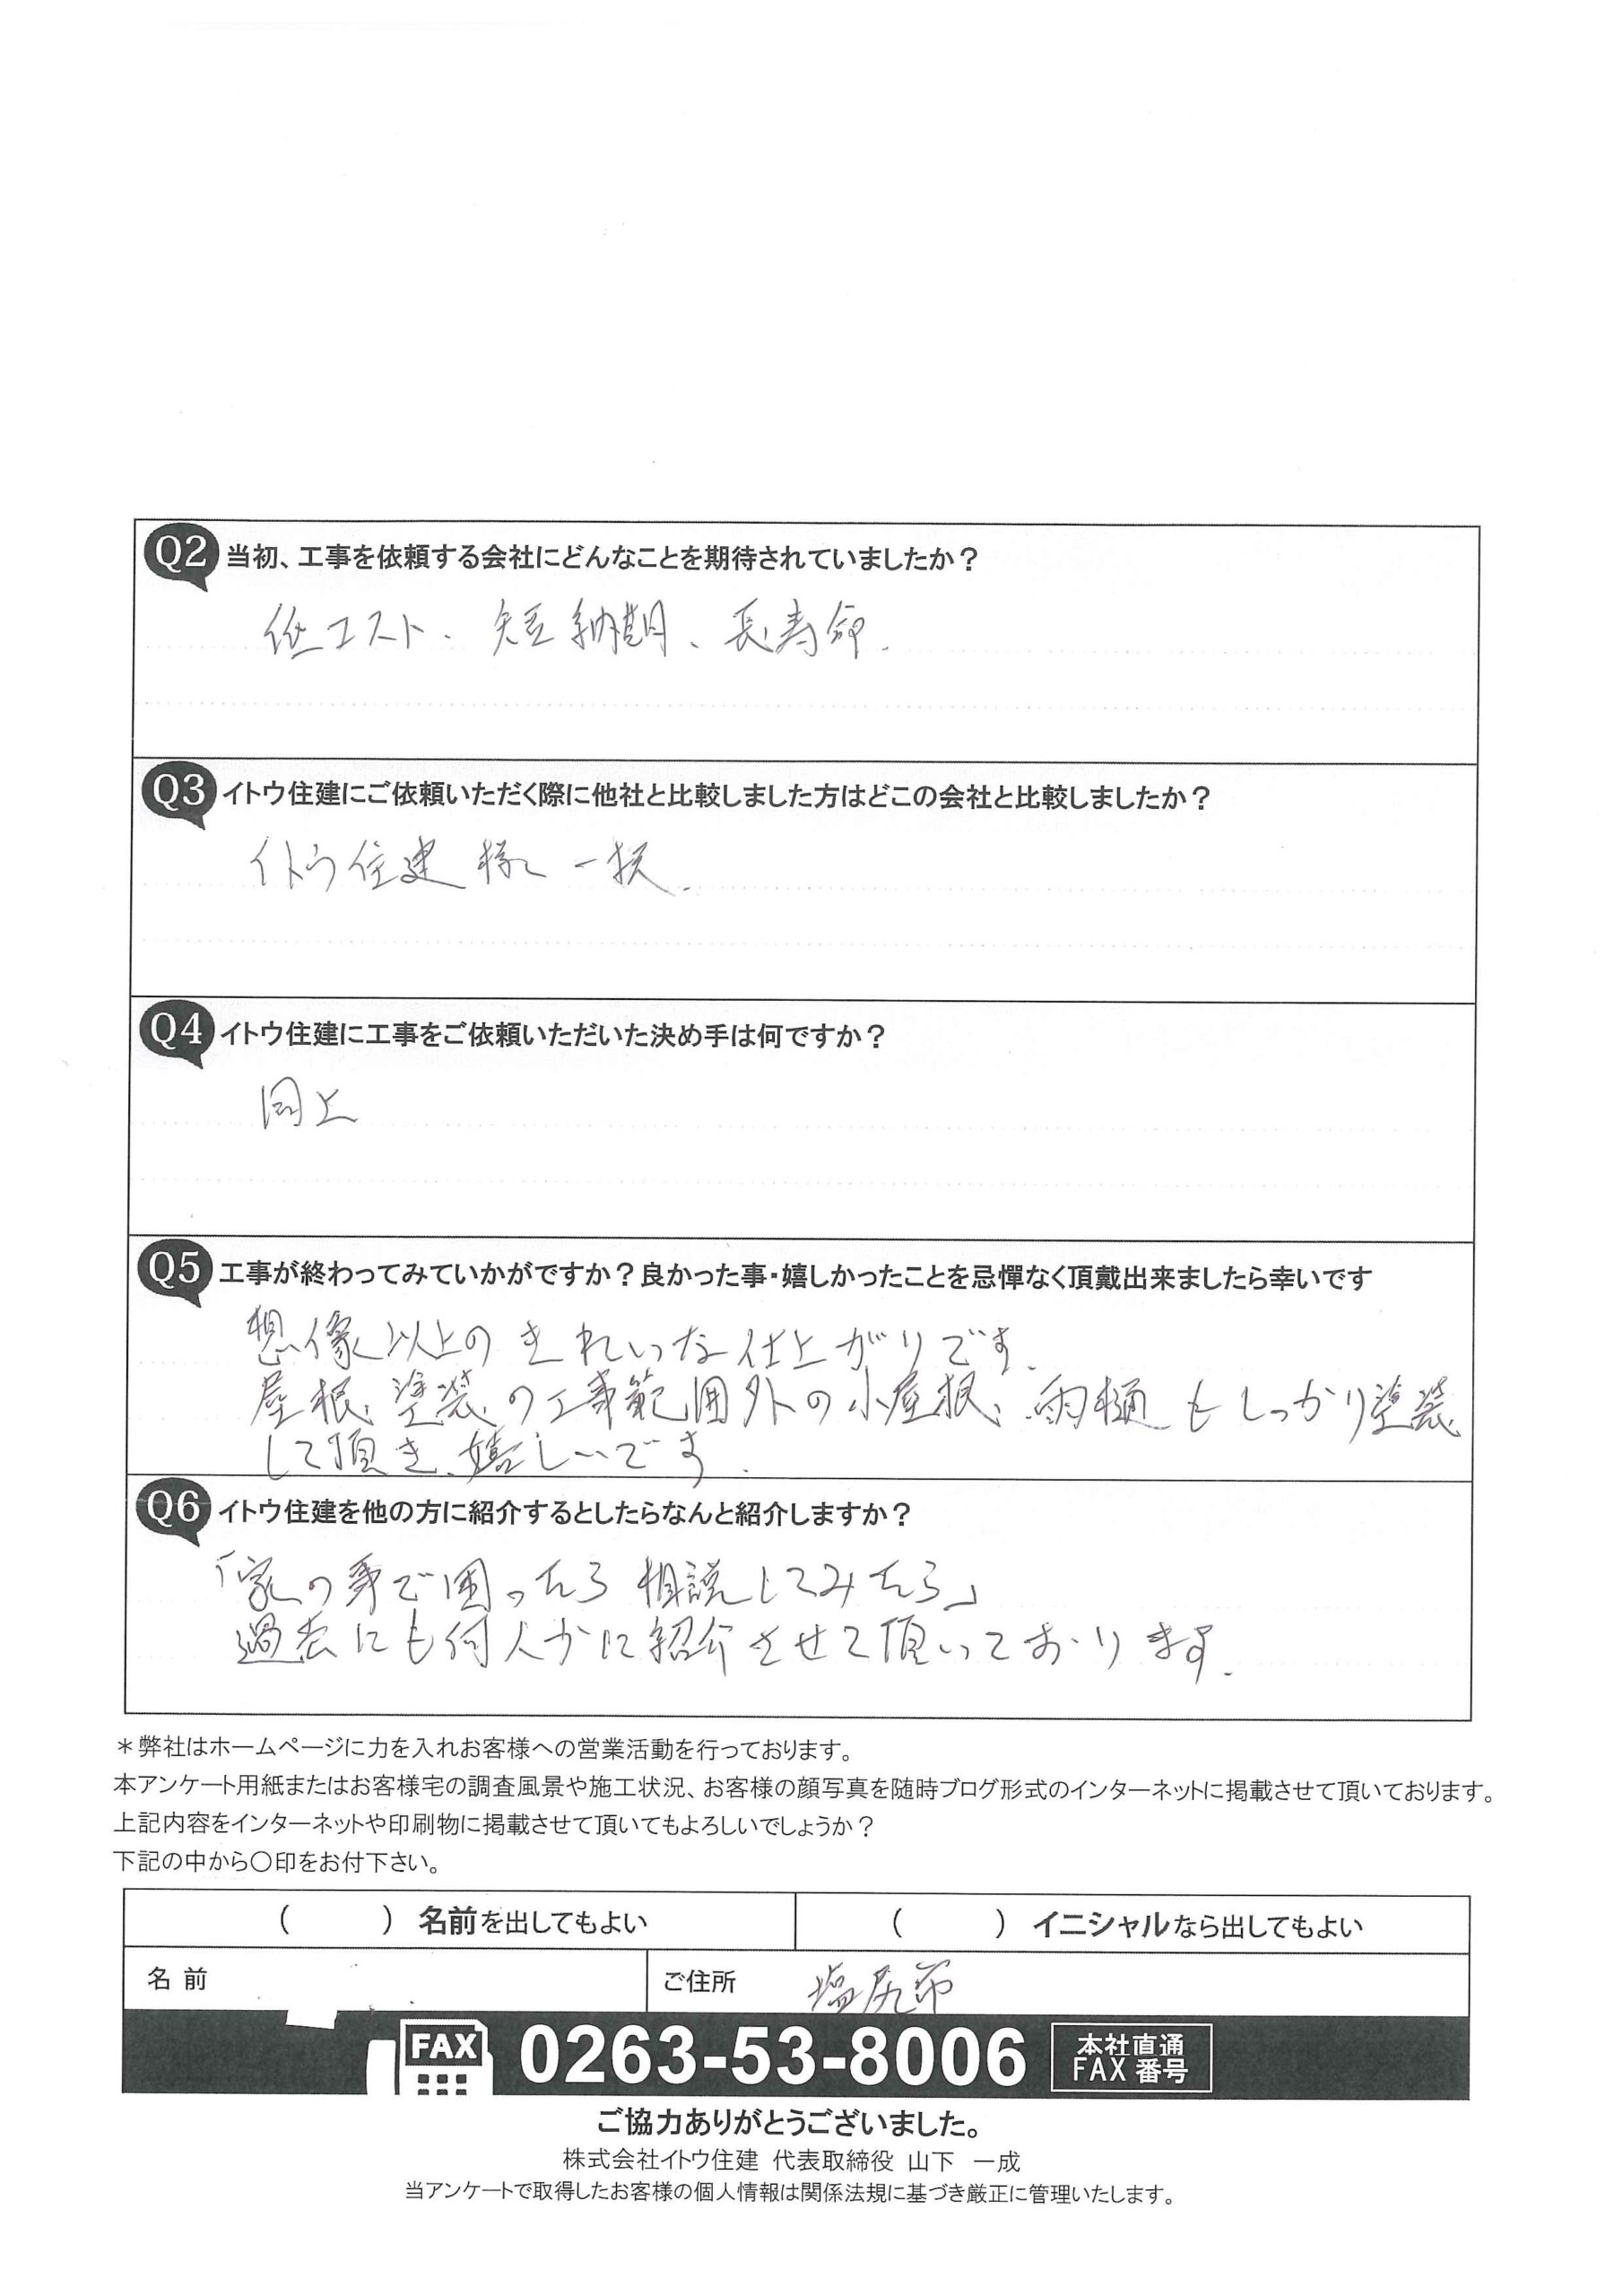 Q2 当初、工事を依頼する会社にどんなことを期待されていましたか？
低コスト、短納期、長寿命.
Q3 イトウ住建にご依頼いただく際に他社と比較しました方はどこの会社と比較しましたか？
イトウ住建様 一択.
Q4 イトウ住建に工事をご依頼いただいた決め手は何ですか？
同上
Q5 工事が終わってみていかがですか？良かった事・嬉しかったことを忌憚なく頂戴出来ましたら幸いです
想像以上のきれいな仕上がりです.
屋根、塗装の工事範囲外の小屋根、雨樋もしっかり塗装
して頂き、嬉しいです.
Q6 イトウ住建を他の方に紹介するとしたらなんと紹介しますか？
「家の事で困ったら相談してみたら」
過去にも何人かに紹介させて頂いております.
＊弊社はホームページに力を入れお客様への営業活動を行っております。
本アンケート用紙またはお客様宅の調査風景や施工状況、お客様の顔写真を随時ブログ形式のインターネットに掲載させて頂いております。
上記内容をインターネットや印刷物に掲載させて頂いてもよろしいでしょうか？
下記の中から〇印をお付下さい。
（　　）名前を出してもよい　（　　）イニシャルなら出してもよい
名前　ご住所 塩尻市
FAX 0263-53-8006 本社直通
FAX 番号
ご協力ありがとうございました。
株式会社イトウ住建 代表取締役 山下 一成
当アンケートで取得したお客様の個人情報は関係法規に基づき厳正に管理いたします。